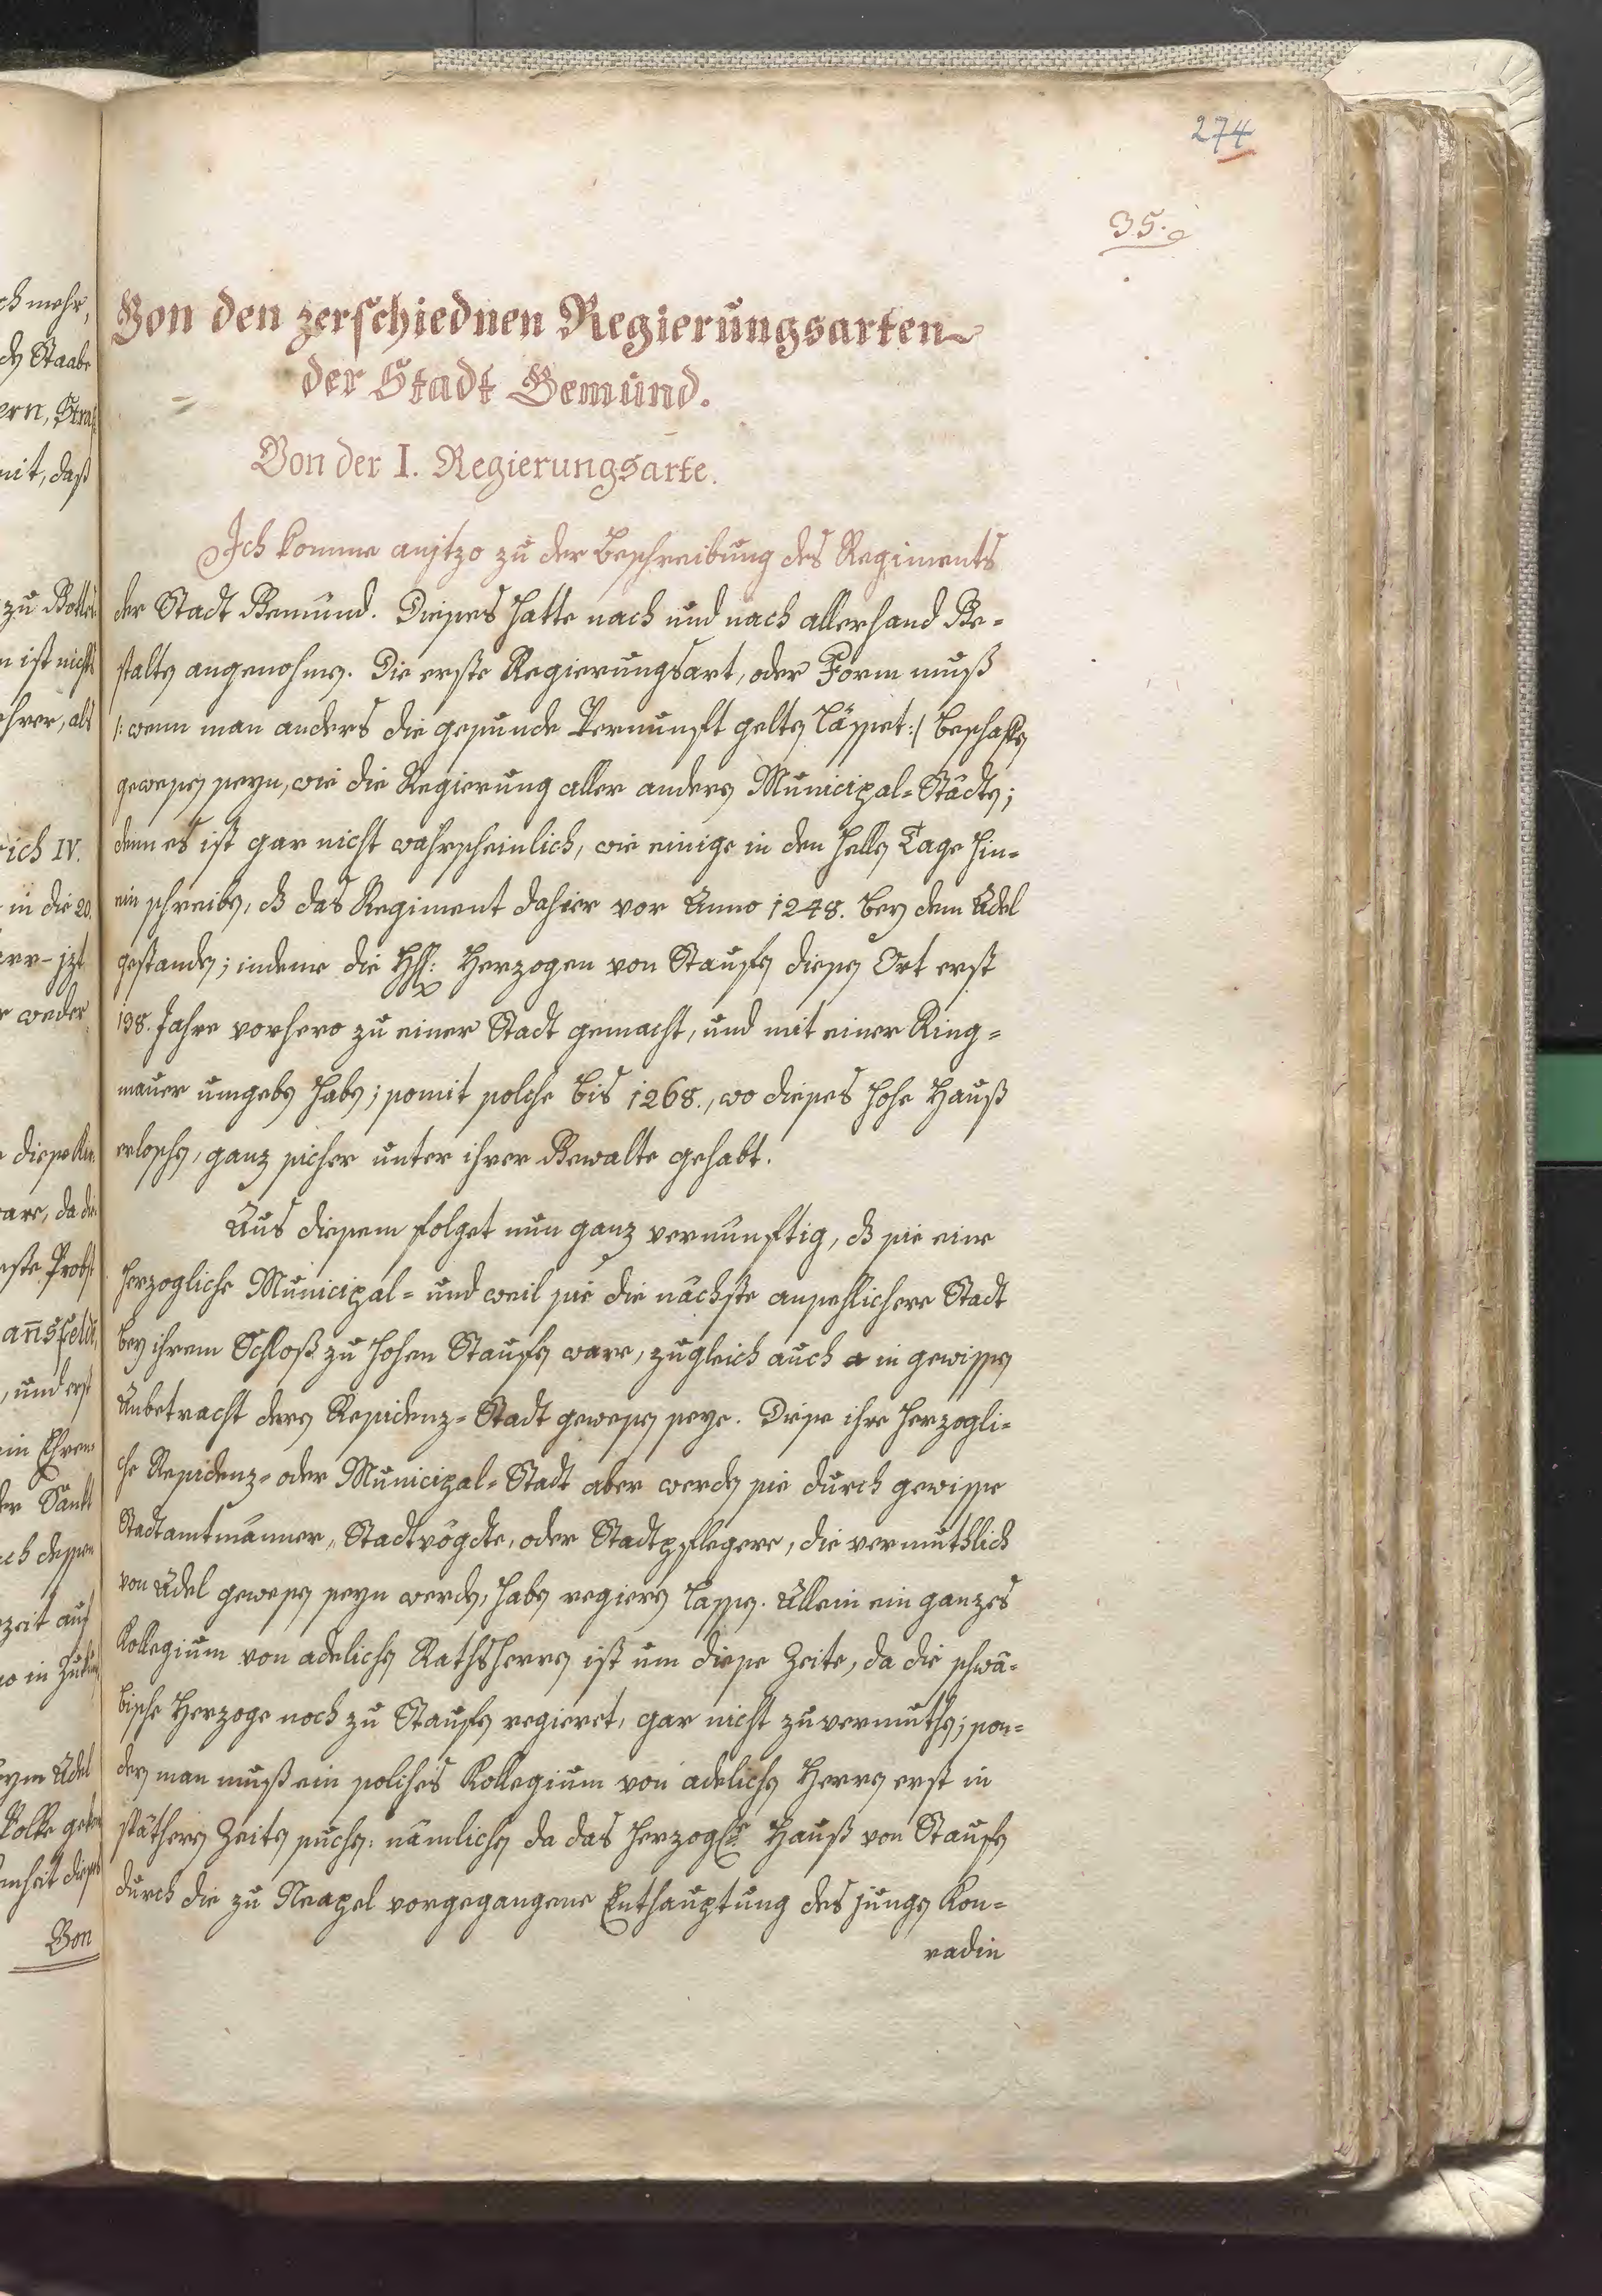 274
35.
Von den zerschiednen Regierungsarten
der Stadt Gemünd.
Von der I. Regierungsarte.
Ich komme anjtzo zu der Beschreibung des Regiments
der Stadt Gemünd. Dieses hatte nach und nach allerhand Ge=
stalten angenohmen. Die erste Regierungsart, oder Form muß
/: wenn man anders die gesunde Vernunft gelten lässet :/ beschaffen
gewesen seyn, wie die Regierung aller andern Municipal=Städten;
denn es ist gar nicht wahrscheinlich, wie einige in den hellen Tage hin=
ein schreiben, dß das Regiment dahier vor Anno 1248. bey dem Adel
gestanden; indeme die HH: Herzogen von Staufen diesen Ort erst
138. Jahre vorhero zu einer Stadt gemacht, und mit einer Ring=
mauer umgeben haben; somit solche bis 1268., wo dieses hohe Hauß
erloschen, ganz sicher unter ihrer Gewalte gehabt.
Aus diesem folget nun ganz vernünftig, dß sie eine
herzogliche Municipal= und weil sie die nächste ansehlichere Stadt
bey ihrem Schloß zu hohen Staufen ware, zugleich auch in gewissen
Anbetracht deren Residenz=Stadt gewesen seye. Diese ihre herzogli=
che Residenz= oder Municipal=Stadt aber werden sie durch gewisse
Stadtamtmänner, Stadtvögdte, oder Stadtpflegere, die vermuthlich
von Adel gewesen seyn werden, haben regieren lassen. Allein ein ganzes
Kollegium von adelichen Rathsherren ist um diese Zeite, da die schwä=
bische Herzoge noch zu Staufen regieret, gar nicht zu vermuthen; son=
dern man muß ein solches Kollegium von adelichen Herren erst in
späthern Zeiten suchen: nämlichen da das herzogle Hauß von Staufen
durch die zu Neapel vorgegangene Enthauptung des jungen Kon=
radin